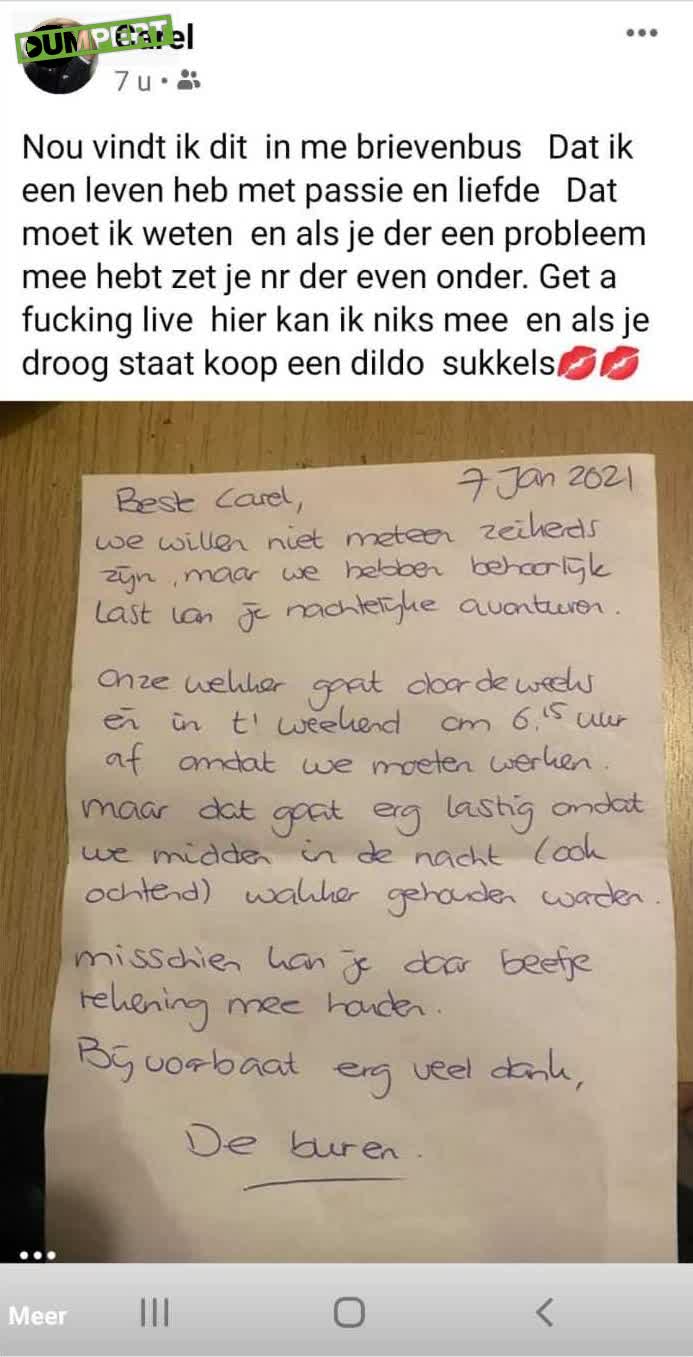 DUMPERT
Carel
7 u
Nou vindt ik dit in me brievenbus Dat ik
een leven heb met passie en liefde Dat
moet ik weten en als je der een probleem
mee hebt zet je nr der even onder. Get a
fucking live hier kan ik niks mee en als je
droog staat koop een dildo sukkels💋💋
7 Jan 2021
Beste Carel,
we willen niet meteen zeikerds
zijn, maar we hebben behoorlijk
last van je nachtelijke avonturen.
Onze wekker gaat door de weeks
én in t' weekend om 6.15 uur
af omdat we moeten werken.
maar dat gaat erg lastig omdat
we midden in de nacht (ook
ochtend) wakker gehouden worden.
misschien kan je daar beetje
rekening mee houden.
Bij voorbaat erg veel dank,
De buren.
Meer